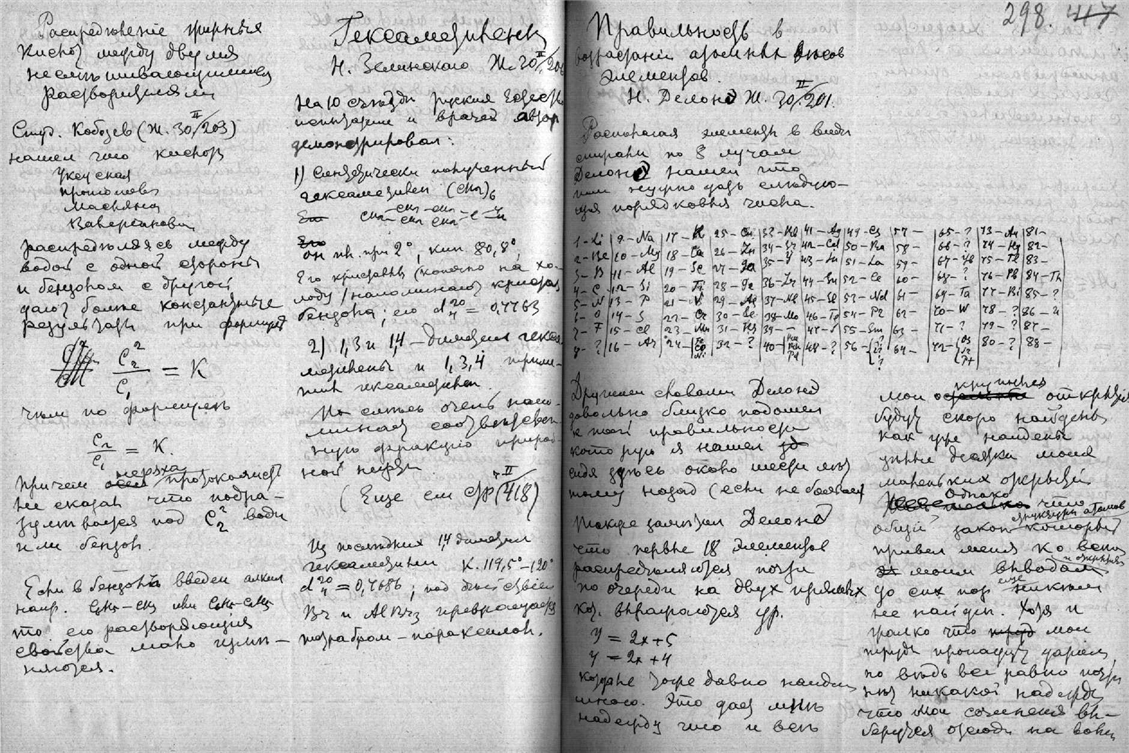 Распределение жирных
Кислот между двумя
несмешивающимися
растворителями
Студ. Кобозев (Ж. 30 II/203)
нашел что кислоты
Уксусная
Пропионов
Масляна
Валериановая
распределяясь между
водой с одной стороны
и бензолом с другой
дают более константные
результаты при формуле
C₂²/C₁ = K
чем по формуле
C₂/C₁ = K.
Причем
не сказал что подра-
зумевался под C₂² вода
или бензол.
Если в бензол введен алкил
напр. C₆H₅-CH₃ или
то его растворяющия
свойства мало изме-
няются.
Гексаметилены
Н. Зелинского Ж. 30 II/206
На 10 съезде русских Естеств
испытател и врачей автор
демонстрировал:
1) Синтетически полученный
гексаметилен (CH₂)₆
он пл. при 2°, кип. 80,8°,
Его кристаллы (конечно на хо-
лоду) напоминают кристал
бензола; его d₄²⁰ = 0,7763
2) 1,3 и 1,4 – диметил гекса
метилены и 1,3,4 триме-
тил гексаметилен.
Их смесь очень напо-
минает соответствен-
ную фракцию природ-
ной нефти
(Еще см стр II (418)
Из последних 1,4 диметил
гексаметилен К. 119,5°–120°
d₄²⁰ = 0,7686; под действием
Br и AlBr₃ превращается
тетрабром-параксилол.
298. 417
Правильность в
возрастании атомных весов
элементов.
Н. Делоне Ж. 30 II/201.
Располагая элементы в виде
спирали по 8 лучам
Делоне нашел что
им нужно дать следую-
щия порядковыя числа.
1-Li | 9-Na | 17-K | 25-Cu | 33-Rb | 41-Ag | 49-Cs | 57- | 65-? | 73-Au | 81-
2-Be | 10-Mg | 18-Ca | 26-Zn | 34-Sr | 42-Cd | 50-Ba | 58- | 66-? | 74-Hg | 82-
3-B | 11-Al | 19-Sc | 27-Ga | 35-Y | 43-In | 51-La | 59- | 67-Yb | 75-Tl | 83-
4-C | 12-Si | 20-Ti | 28-Ge | 36-Zr | 44-Sn | 52-Ce | 60- | 68-? | 76-Pb | 84-Th
5-N | 13-P | 21-V | 29-As | 37-Nb | 45-Sb | 53-Nd | 61- | 69-Ta | 77-Bi | 85-?
6-O | 14-S | 22-Cr | 30-Se | 38-Mo | 46-Te | 54-Pr | 62- | 70-W | 78-? | 86-U
7-F | 15-Cl | 23-Mn | 31-Br | 39-- | 47-J | 55-Sm | 63- | 71-? | 79-? | 87-
8-? | 16-Ar | 24-Fe Co Ni | 32-? | 40-Ru Rh Pd | 48-? | 56- | 64- | 72-Os Ir Pt | 80-? | 88-
Другими словами Делоне
довольно близко подошел
к той правильности
которую я нашел
сидя здесь около шести лет
тому назад (если не больше)
Также заметил Делоне
что первые 18 элементов
распределяются почти
по очереди на двух прямых
кот. выражаются ур.
y = 2x+5
y = 2x+4
которые тоже давно найдены
мною. Это дает мне
надежду что и все
мои крупныя открытия
будут скоро найдены
как уже найдены
уже десятки моих
маленьких открытий
Однако что
общий закон структуры атомов который
привел меня ко всем
моим выводам и открытиям
до сих пор еще никем
не найден. Хотя и
грустно что мои
труды пропадут даром
но ведь все равно почти
нет никакой надежды
что мои сочинения вы-
берутся отсюда на волю